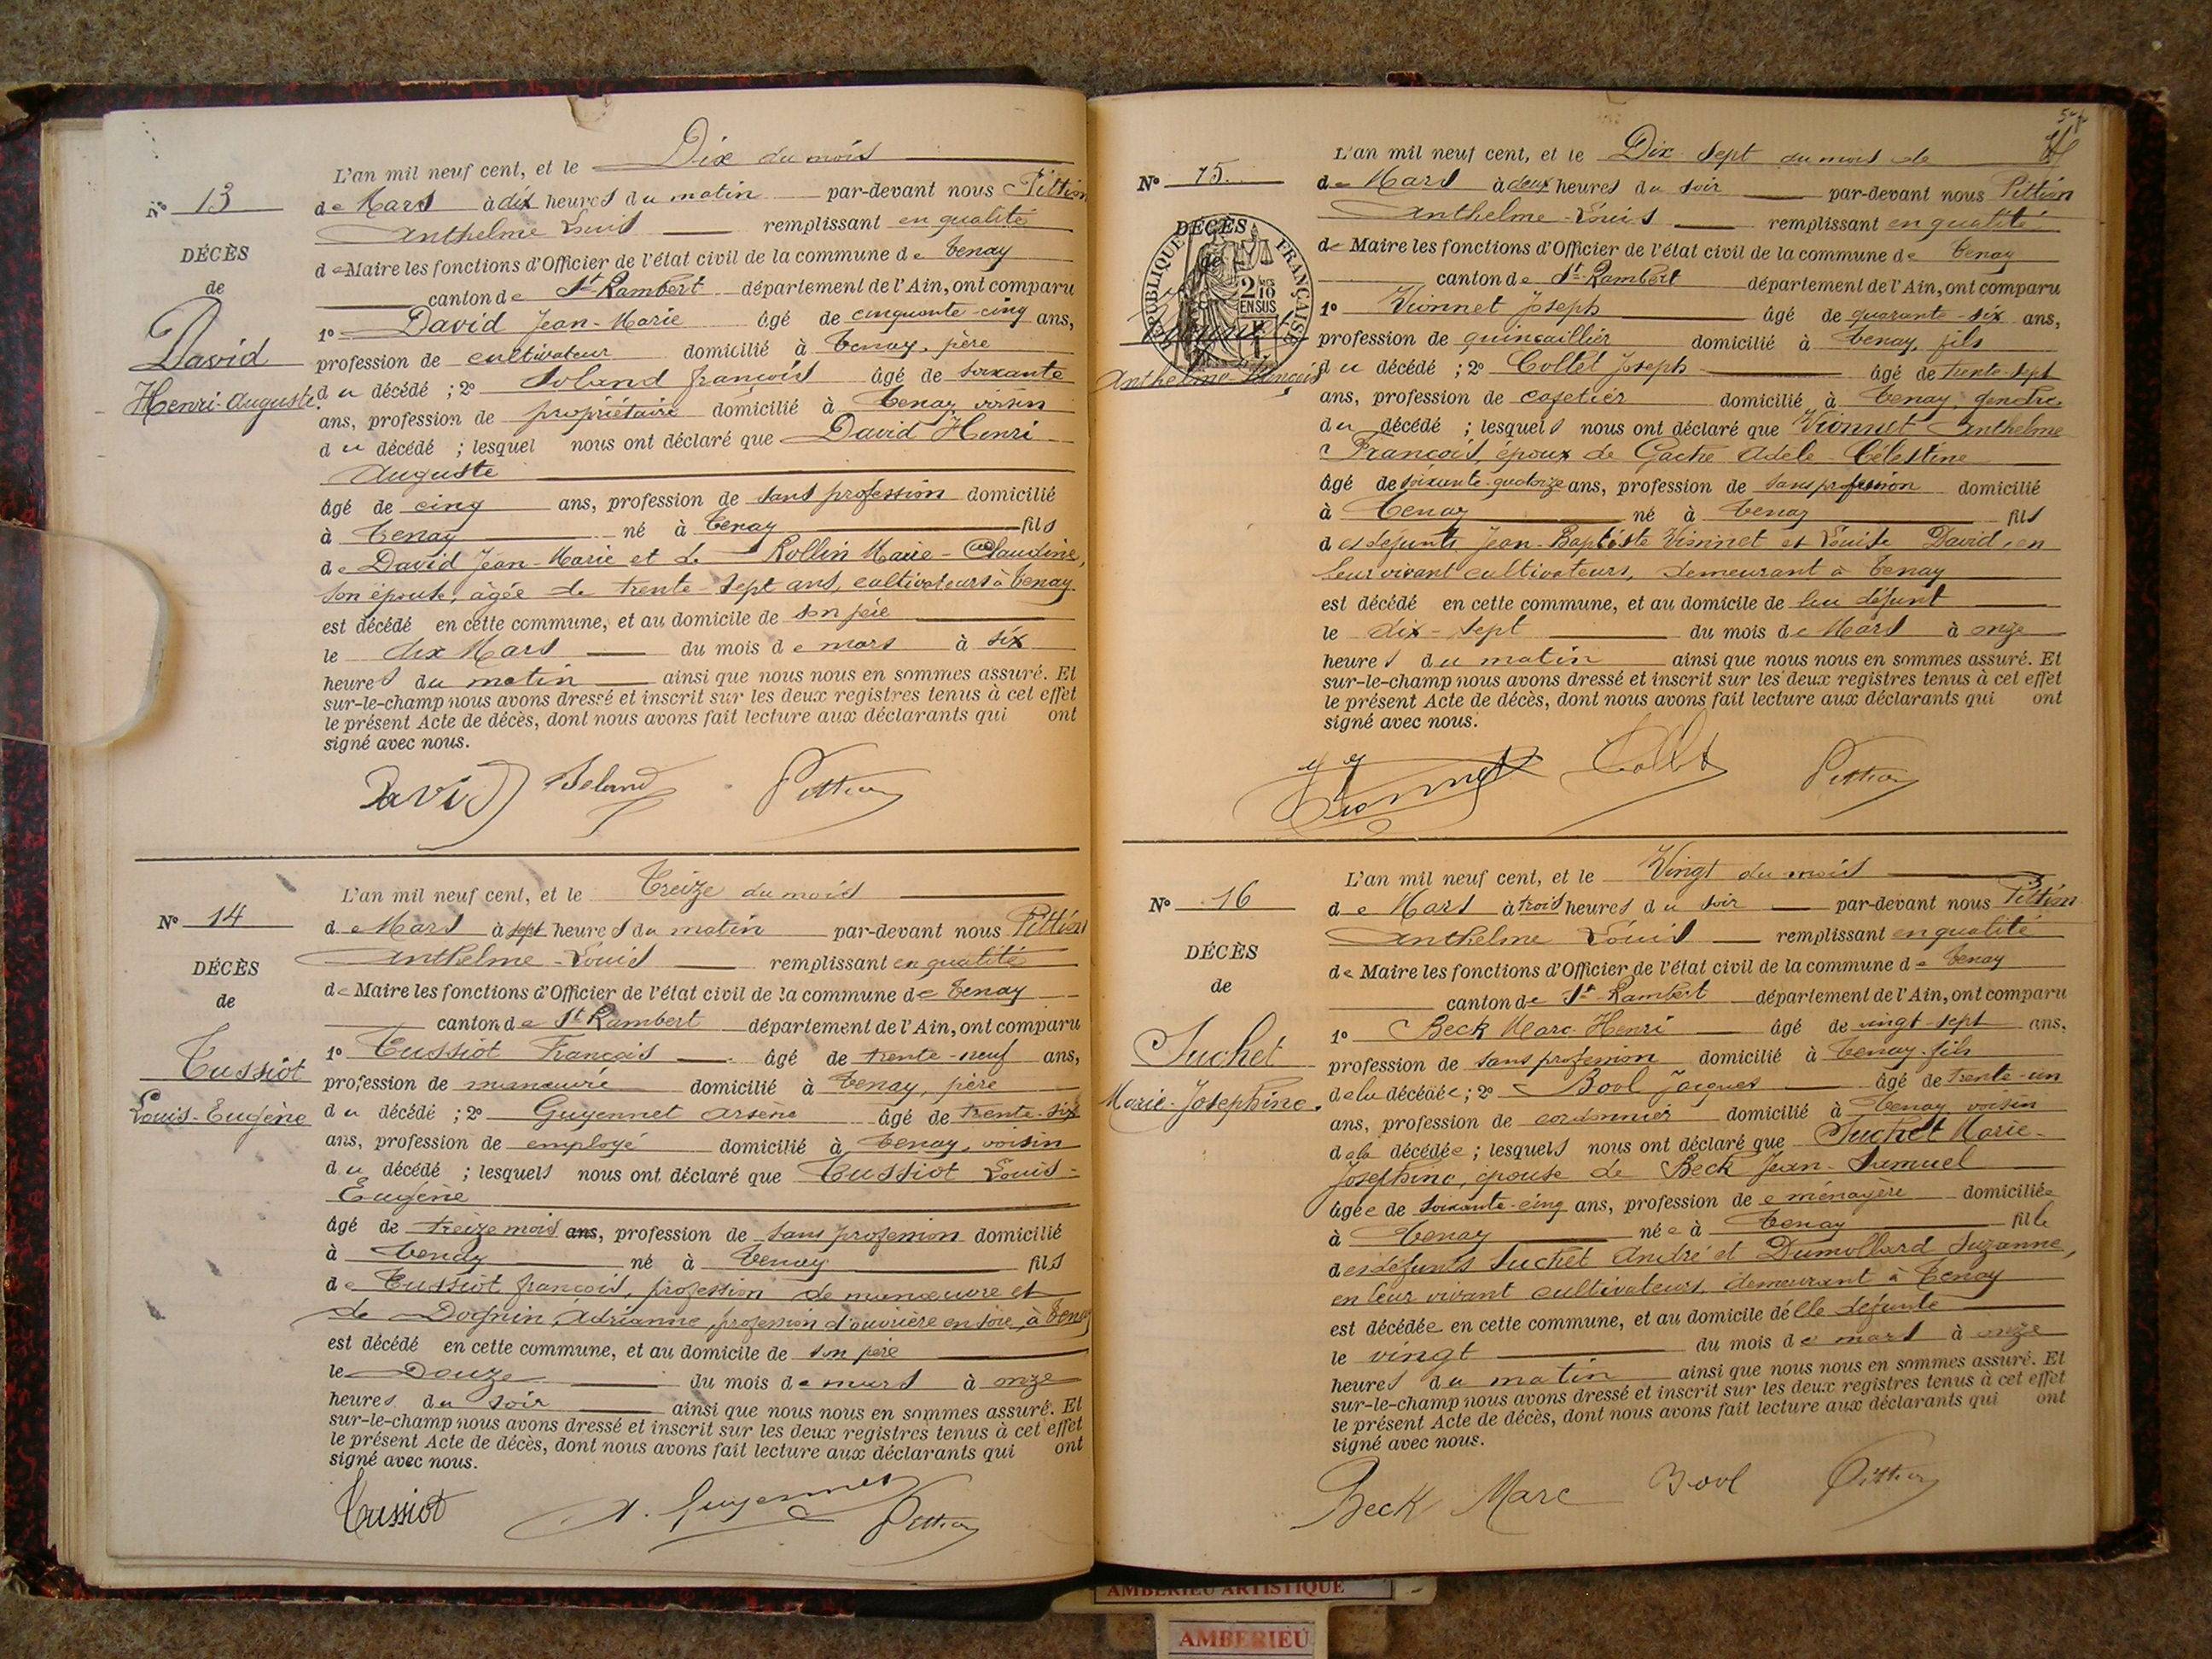 L'an mil neuf cent, et le Dix du mois
de Mars à dix heures du matin par-devant nous Pittion
Anthelme Louis remplissant en qualité
de Maire les fonctions d'Officier de l'état civil de la commune de Tenay
canton de St Rambert département de l'Ain, ont comparu
1º David Jean-Marie âgé de cinquante-cinq ans,
profession de cultivateur domicilié à Tenay, père
du décédé ; 2º Soland françois âgé de soixante
ans, profession de propriétaire domicilié à Tenay, voisin
du décédé ; lesquel nous ont déclaré que David Henri
Auguste
âgé de cinq ans, profession de sans profession domicilié
à Tenay né à Tenay fils
de David Jean-Marie et de Rollin Marie-Claudine,
son épouse, âgée de trente-sept ans, cultivateurs à Tenay
est décédé en cette commune, et au domicile de son père
le dix Mars du mois de mars à six
heures du matin ainsi que nous nous en sommes assuré. Et
sur-le-champ nous avons dressé et inscrit sur les deux registres tenus à cet effet
le présent Acte de décès, dont nous avons fait lecture aux déclarants qui ont
signé avec nous.
David Soland Pittion
Nº 13
DÉCÈS
de
David
Henri-Auguste.
L'an mil neuf cent, et le Treize du mois
de Mars à sept heures du matin par-devant nous Pittion
Anthelme-Louis remplissant en qualité
de Maire les fonctions d'Officier de l'état civil de la commune de Tenay
canton de St Rambert département de l'Ain, ont comparu
1º Tussiot François âgé de trente-neuf ans,
profession de manœuvre domicilié à Tenay, père
du décédé ; 2º Guyennet Arsène âgé de trente-six
ans, profession de employé domicilié à Tenay, voisin
du décédé ; lesquels nous ont déclaré que Tussiot Louis-
Eugène
âgé de treize mois ans, profession de sans profession domicilié
à Tenay né à Tenay fils
de Tussiot françois, profession de manœuvre et
de Dognin, Adrianne, profession d'ouvrière en soie, à Tenay
est décédé en cette commune, et au domicile de son père
le Douze du mois de mars à onze
heures du soir ainsi que nous nous en sommes assuré. Et
sur-le-champ nous avons dressé et inscrit sur les deux registres tenus à cet effet
le présent Acte de décès, dont nous avons fait lecture aux déclarants qui ont
signé avec nous.
Tussiot A. Guyennet Pittion
Nº 14
DÉCÈS
de
Tussiot
Louis-Eugène
L'an mil neuf cent, et le Dix-Sept du mois de
de Mars à deux heures du soir par-devant nous Pittion
Anthelme-Louis remplissant en qualité
de Maire les fonctions d'Officier de l'état civil de la commune de Tenay
canton de St-Rambert département de l'Ain, ont comparu
1º Vionnet Joseph âgé de quarante-six ans,
profession de quincaillier domicilié à Tenay, fils
du décédé ; 2º Collet Joseph âgé de trente-sept
ans, profession de cafetier domicilié à Tenay, gendre
du décédé ; lesquels nous ont déclaré que Vionnet Anthelme
François époux de Gache Adèle-Célestine
âgé de soixante-quatorze ans, profession de sans profession domicilié
à Tenay né à Tenay fils
des défunts Jean-Baptiste Vionnet et Louise David, en
leur vivant cultivateurs, demeurant à Tenay
est décédé en cette commune, et au domicile de lui défunt
le dix-sept du mois de Mars à onze
heures du matin ainsi que nous nous en sommes assuré. Et
sur-le-champ nous avons dressé et inscrit sur les deux registres tenus à cet effet
le présent Acte de décès, dont nous avons fait lecture aux déclarants qui ont
signé avec nous.
Vionnet Collet Pittion
Nº 15.
DÉCÈS
de
RÉPUBLIQUE FRANÇAISE
2/10
EN SUS
Vionnet
Anthelme-François
L'an mil neuf cent, et le Vingt du mois
de Mars à trois heures du soir par-devant nous Pittion
Anthelme Louis remplissant en qualité
de Maire les fonctions d'Officier de l'état civil de la commune de Tenay
canton de St-Rambert département de l'Ain, ont comparu
1º Beck Marc-Henri âgé de vingt-sept ans,
profession de sans profession domicilié à Tenay, fils
de la décédée ; 2º Bovl Jacques âgé de trente-un
ans, profession de cordonnier domicilié à Tenay, voisin
de la décédée ; lesquels nous ont déclaré que Suchet Marie-
Josephine, épouse de Beck Jean-Samuel
âgée de soixante-cinq ans, profession de ménagère domiciliée
à Tenay née à Tenay fille
des défunts Suchet André et Dumollard Suzanne,
en leur vivant cultivateurs, demeurant à Tenay
est décédée en cette commune, et au domicile délle défunte
le vingt du mois de mars à onze
heures du matin ainsi que nous nous en sommes assuré. Et
sur-le-champ nous avons dressé et inscrit sur les deux registres tenus à cet effet
le présent Acte de décès, dont nous avons fait lecture aux déclarants qui ont
signé avec nous.
Beck Marc Bovl Pittion
Nº 16
DÉCÈS
de
Suchet
Marie-Josephine.
AMBERIEU ARTISTIQUE
AMBERIEU